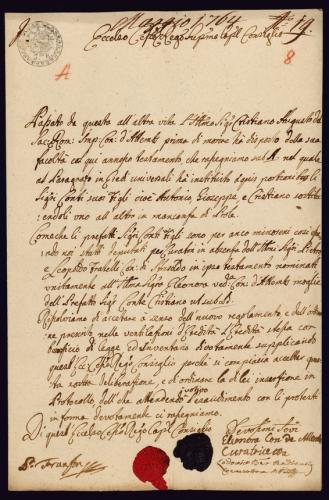 Maggio 1764 N. 19
Eccelso Ces. Reg. Supremo Capit. Consiglio
8
A
Passato da questo all'altra vita l'Illmo Sigr Cristiano Augusto del
Sac. Rom. Imp. Con. d'Attems prima di morire ha disposto della sua
facoltà col qui annesso testamento, che rassegniamo sub A nel quale
ad Paragrafo in Eredi universali hà instituito a equi porzioni li
Sigri Conti suoi Figli cioè Antonio, Giuseppe, e Cristiano sostitu
endoli uno all'altro in mancanza di Prole.
Come che li prefatti Sigri Conti Figli sono per anco minorenni così
sono stati deputati per Curatori in absenza dell'Illmo Sigr
Leopoldo Fratello Con. di in ipso testamento nominati
unitamente all'Illma Sigra Eleonora ved. Con. d'Attems moglie
dell Prefatto Sigr Conte Cristiano ut supra.
Risolviamo di accetare a senso dell nuovo regolamento, e dell'ordine
ne prescrito nelle ventilationi d'Eredità l'Eredità stessa con
beneficio di legge ed Inventario devotamente supplicando
quest' Ecc. Ces. Reg. Consiglio perchè si compiacia accettar que
sta nostra deliberazione, e di ordinare la di lei insertione in
Protocollo, dell che attendendo l'esaudimento con li protesti
in forma devotamente ci rassegniamo.
Di quest' Eccelso Ces. Reg. Cap. Consiglio
Devotissimi Servi
Eleonora Con. de Attems
Curatrice